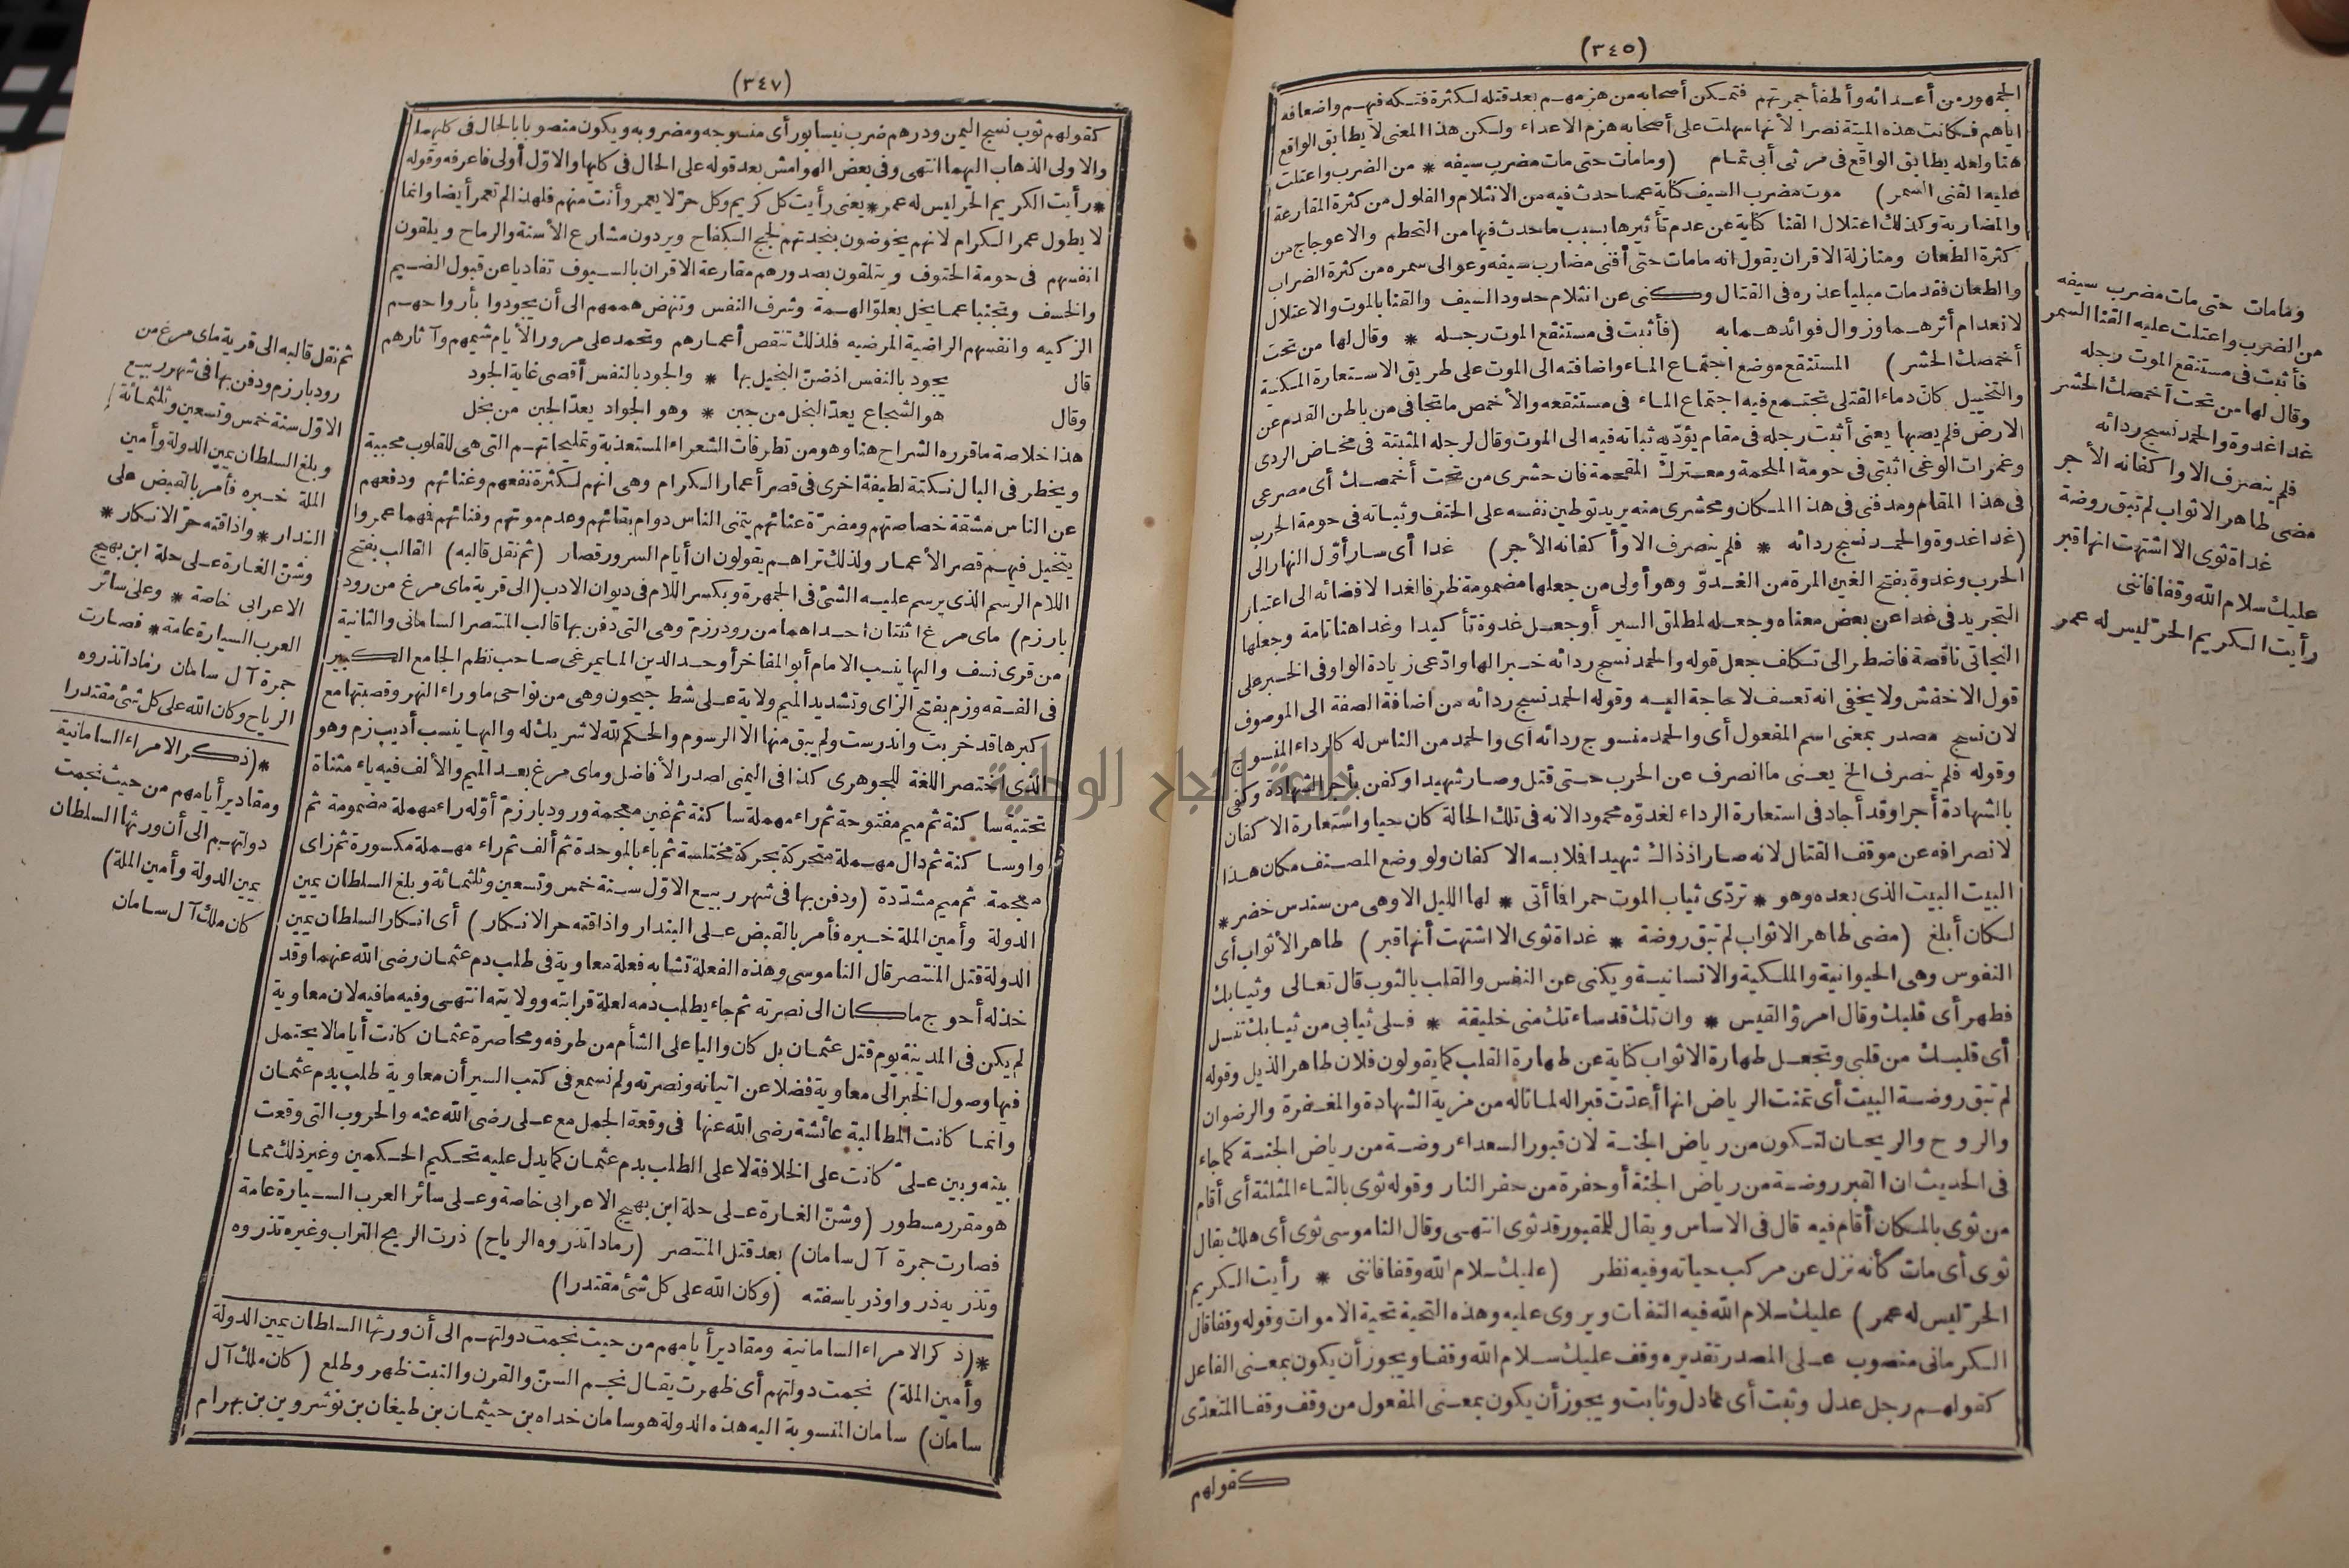 (٣٤٥)
الجمهور من أعدائه وأطفأ جمرتهم فتمكن أصحابه من هزمهم بعد قتله لكثرة فتكه فيهم واضعافه
اياهم فكانت هذه الميتة نصرا لأنها سهلت على أصحابه هزم الاعداء ولكن هذا المعنى لا يطابق الواقع
هنا ولعله يطابق الواقع فى مرثى أبى تمام (وما مات حتى مات مضرب سيفه * من الضرب واعتلت
عليه القنى السمر) موت مضرب السيف كناية عما حدث فيه من الانثلام والفلول من كثرة المقارعة
والمضاربة وكذلك اعتلال القنا كناية عن عدم تأثيرها بسبب ما حدث فيها من التحطم والاعوجاج من
كثرة الطعان ومنازلة الاقران يقول انه ما مات حتى أفنى مضارب سيفه وعوالى سمره من كثرة الضراب
والطعان فقد مات مبليا عذره فى القتال وكنى عن انثلام حدود السيف والقنا بالموت والاعتلال
لانعدام أثرهما وزوال فوائدهما به (فأثبت فى مستنقع الموت رجله * وقال لها من تحت
أخمصك الحشر) المستنقع موضع اجتماع الماء واضافته الى الموت على طريق الاستعارة المكنية
والتخييل كان دماء القتلى تجتمع فيه اجتماع الماء فى مستنقعه والأخمص ما تجافى من باطن القدم عن
الارض فلم يصبها يعنى أثبت رجله فى مقام يؤدّيه ثباته فيه الى الموت وقال لرجله المثبتة فى مخاض الردى
وغمرات الوغى اثبتى فى حومة الملحمة ومعترك المقحمة فان حشرى من تحت أخمصك أى مصرعى
فى هذا المقام ومدفنى فى هذا المكان ومحشرى منه يريد توطين نفسه على الحتف وثباته فى حومة الحرب
(غدا غدوة والحمد نسج ردائه * فلم ينصرف الا وأكفانه الأجر) غدا أى سار أوّل النهار الى
الحرب وغدوة بفتح الغين المرة من الغدوّ وهو أولى من جعلها مضمومة ظرفا لغدا لافضائه الى اعتبار
التجريد فى غدا عن بعض معناه وجعله لمطلق السير أو جعل غدوة تأكيدا وغدا هنا تامة وجعلها
النجاتى ناقصة فاضطر الى تكلف جعل قوله والحمد نسج ردائه خبرا لها وادّعى زيادة الواو فى الخبر على
قول الاخفش ولا يخفى انه تعسف لا حاجة اليه وقوله الحمد نسج ردائه من اضافة الصفة الى الموصوف
لان نسج مصدر بمعنى اسم المفعول أى والحمد منسوج ردائه أى والحمد من الناس له كالرداء المنسوج
وقوله فلم ينصرف الخ يعنى ما انصرف عن الحرب حتى قتل وصار شهيدا وكفن بأجر الشهادة وكفى
بالشهادة أجرا وقد أجاد فى استعارة الرداء لغدوّه محمودا لانه فى تلك الحالة كان حيا واستعارة الاكفان
لانصرافه عن موقف القتال لانه صار اذذاك شهيدا فلابسه الاكفان ولو وضع المصنف مكان هذا
البيت البيت الذى بعده وهو * تردّى ثياب الموت حمرا فما أتى * لها الليل الا وهى من سندس خضر *
لكان أبلغ (مضى طاهر الاثواب لم تبق روضة * غداة ثوى الا اشتهت أنها قبر) طاهر الأثواب أى
النفوس وهى الحيوانية والملكية والانسانية ويكنى عن النفس والقلب بالثوب قال تعالى وثيابك
فطهر أى قلبك وقال امرؤ القيس * وان تك قد ساءتك منى خليقة * فسلى ثيابى من ثيابك تنسل
أى قلبك من قلبى وتجعل طهارة الاثواب كناية عن طهارة القلب كما يقولون فلان طاهر الذيل وقوله
لم تبق روضة البيت أى تمنت الرياض انها أعدّت قبرا له لما ناله من مزية الشهادة والمغفرة والرضوان
والروح والريحان لتكون من رياض الجنة لان قبور السعداء روضة من رياض الجنة كما جاء
فى الحديث ان القبر روضة من رياض الجنة أو حفرة من حفر النار وقوله ثوى بالثاء المثلثة أى أقام
من ثوى بالمكان أقام فيه قال فى الاساس ويقال للمقبور قد ثوى انتهى وقال الناموسى ثوى أى هلك يقال
ثوى أى مات كأنه نزل عن مركب حياته وفيه نظر (عليك سلام الله وقفا فاننى * رأيت الكريم
الحرّ ليس له عمر) عليك سلام الله فيه التفات ويروى عليه وهذه التحية تحية الاموات وقوله وقفا قال
الكرمانى منصوب على المصدر تقديره وقف عليك سلام الله وقفا ويجوز أن يكون بمعنى الفاعل
كقولهم رجل عدل وثبت أى عادل وثابت ويجوز أن يكون بمعنى المفعول من وقف وقفا المتعدّى
كقولهم
وما مات حتى مات مضرب سيفه
من الضرب واعتلت عليه القنا السمر
فأثبت فى مستنقع الموت رجله
وقال لها من تحت أخمصك الحشر
غدا غدوة والحمد نسج ردائه
فلم ينصرف الا وأكفانه الأجر
مضى طاهر الاثواب لم تبق روضة
غداة ثوى الا اشتهت انها قبر
عليك سلام الله وقفا فاننى
رأيت الكريم الحرّ ليس له عمر
(٣٤٧)
كقولهم ثوب نسج اليمن ودرهم ضرب نيسابور أى منسوجه ومضروبه ويكون منصوبا بالحال فى كليهما
والاولى الذهاب اليهما انتهى وفى بعض الهوامش بعد قوله على الحال فى كليهما والاوّل أولى فاعرفه وقوله
* رأيت الكريم الحرّ ليس له عمر * يعنى رأيت كل كريم وكل حرّ لا يعمر وأنت منهم فلهذا لم تعمر أيضا وانما
لا يطول عمر الكرام لانهم يخوضون بنجدتهم لجج الكفاح ويردون مشارع الأسنة والرماح ويلقون
انفسهم فى حومة الحتوف ويتلقون بصدورهم مقارعة الاقران بالسيوف تفاديا عن قبول الضيم
والخسف وتجنبا عما يخل بعلوّ الهمة وشرف النفس وتنهض هممهم الى أن يجودوا بأرواحهم
الزكيه وانفسهم الراضية المرضيه فلذلك تنقص أعمارهم وتحمد على مرور الأيام شيمهم وآثارهم
قال يجود بالنفس اذ ضنّ البخيل بها * والجود بالنفس أقصى غاية الجود
وقال هو الشجاع يعدّ البخل من جبن * وهو الجواد يعدّ الجبن من بخل
هذا خلاصة ما قرره الشراح هنا وهو من تطرفات الشعراء المستعذبة وتمليحاتهم التى هى للقلوب محببة
ويخطر فى البال نكتة لطيفة اخرى فى قصر أعمار الكرام وهى انهم لكثرة نفعهم وغنائهم ودفعهم
عن الناس مشقة خصاصتهم ومضرّة عنائهم يتمنى الناس دوام بقائهم وعدم موتهم وفنائهم فهما عمروا
يتخيل فيهم قصر الأعمار ولذلك تراهم يقولون ان أيام السرور قصار (ثم نقل قالبه) القالب بفتح
اللام الرسم الذى يرسم عليه الشئ فى الجمهرة وبكسر اللام فى ديوان الادب (الى قرية ماى مرغ من رود
بارزم) ماى مرغ اثنتان احداهما من رودرزم وهى التى دفن بها قالب المنتصر السامانى والثانية
من قرى نسف واليها ينسب الامام أبو المفاخر أوحد الدين المايمرغى صاحب نظم الجامع الكبير
فى الفقه وزم بفتح الزاى وتشديد الميم ولاية على شط جيحون وهى من نواحى ما وراء النهر وقصبتها مع
كبرها قد خربت واندرست ولم يبق منها الا الرسوم والحكم لله لا شريك له واليها ينسب أديب زم وهو
الذى اختصر اللغة للجوهرى كذا فى اليمنى لصدر الأفاضل وماى مرغ بعد الميم والألف فيه ياء مثناة
تحتية ساكنة ثم ميم مفتوحة ثم راء مهملة ساكنة ثم غين معجمة ورود بارزم أوّله راء مهملة مضمومة ثم
واو ساكنة ثم دال مهملة متحركة بحركة مختلسة ثم باء بالموحدة ثم ألف ثم راء مهملة مكسورة ثم زاى
معجمة ثم ميم مشدّدة (ودفن بها فى شهر ربيع الاوّل سنة خمس وتسعين وثلثمائة وبلغ السلطان يمين
الدولة وأمين الملة خبره فأمر بالقبض على البندار واذاقته حر الانكار) أى انكار السلطان يمين
الدولة قتل المنتصر قال الناموسى وهذه الفعلة تشابه فعلة معاوية فى طلب دم عثمان رضى الله عنهما وقد
خذله أحوج ما كان الى نصرته ثم جاء يطلب دمه لعلة قرابته وولايته انتهى وفيه ما فيه لان معاوية
لم يكن فى المدينة يوم قتل عثمان بل كان واليا على الشأم من طرفه ومحاصرة عثمان كانت أياما لا يحتمل
فيها وصول الخبر الى معاوية فضلا عن اتيانه ونصرته ولم نسمع فى كتب السير أن معاوية طلب بدم عثمان
وانما كانت المطالبة عائشة رضى الله عنها فى وقعة الجمل مع على رضى الله عنه والحروب التى وقعت
بينه وبين علىّ كانت على الخلافة لا على الطلب بدم عثمان كما يدل عليه تحكيم الحكمين وغير ذلك مما
هو مقرر مسطور (وشنّ الغارة على حلة ابن بهيج الاعرابى خاصة وعلى سائر العرب السيارة عامة
فصارت جمرة آل سامان) بعد قتل المنتصر (رمادا تذروه الرياح) ذرت الريح التراب وغيره تذروه
وتذريه ذروا وذريا سفته (وكان الله على كل شئ مقتدرا)
*(ذكر الامراء السامانية ومقادير أيامهم من حيث نجمت دولتهم الى أن ورثها السلطان يمين الدولة
وأمين الملة) نجمت دولتهم أى ظهرت يقال نجم السنّ والقرن والنبت ظهر وطلع (كان ملك آل
سامان) سامان المنسوبة اليه هذه الدولة هو سامان خداه بن حيثمان بن طيغان بن نوشروين بن بهرام
ثم نقل قالبه الى قرية ماى مرغ من
رودبارزم ودفن بها فى شهر ربيع
الاوّل سنة خمس وتسعين وثلثمائة
وبلغ السلطان يمين الدولة وأمين
الملة خبره فأمر بالقبض على
البندار * واذاقته حرّ الانكار *
وشنّ الغارة على حلة ابن بهيج
الاعرابى خاصة * وعلى سائر
العرب السيارة عامة * فصارت
جمرة آل سامان رمادا تذروه
الرياح وكان الله على كل شئ مقتدرا
*(ذكر الامراء السامانية
ومقادير أيامهم من حيث نجمت
دولتهم الى أن ورثها السلطان
يمين الدولة وأمين الملة)
كان ملك آل سامان
جامعة النجاح الوطنية